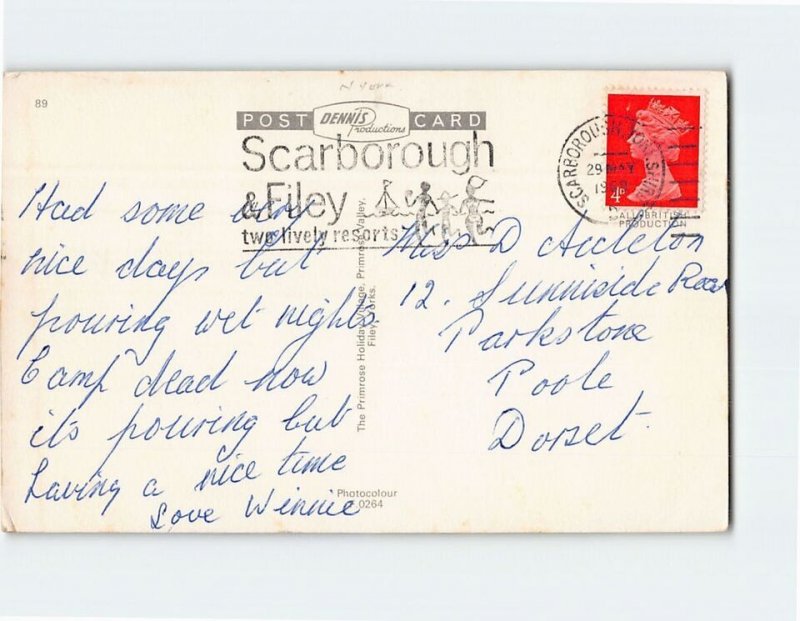 89
POST DENNIS Productions CARD
Scarborough
& Filey
two lively resorts
SCARBOROUGH
29 MAY
4D
ALL BRITISH
PRODUCTION
Had some very
nice days but
pouring wet nights.
Camp dead now
it's pouring but
having a nice time
Love Winnie
The Primrose Holiday Village, Primrose Valley,
Filey, Yorks.
Photocolour
F.0264
Miss D
12. Sunniside Road
Parkstone
Poole
Dorset.